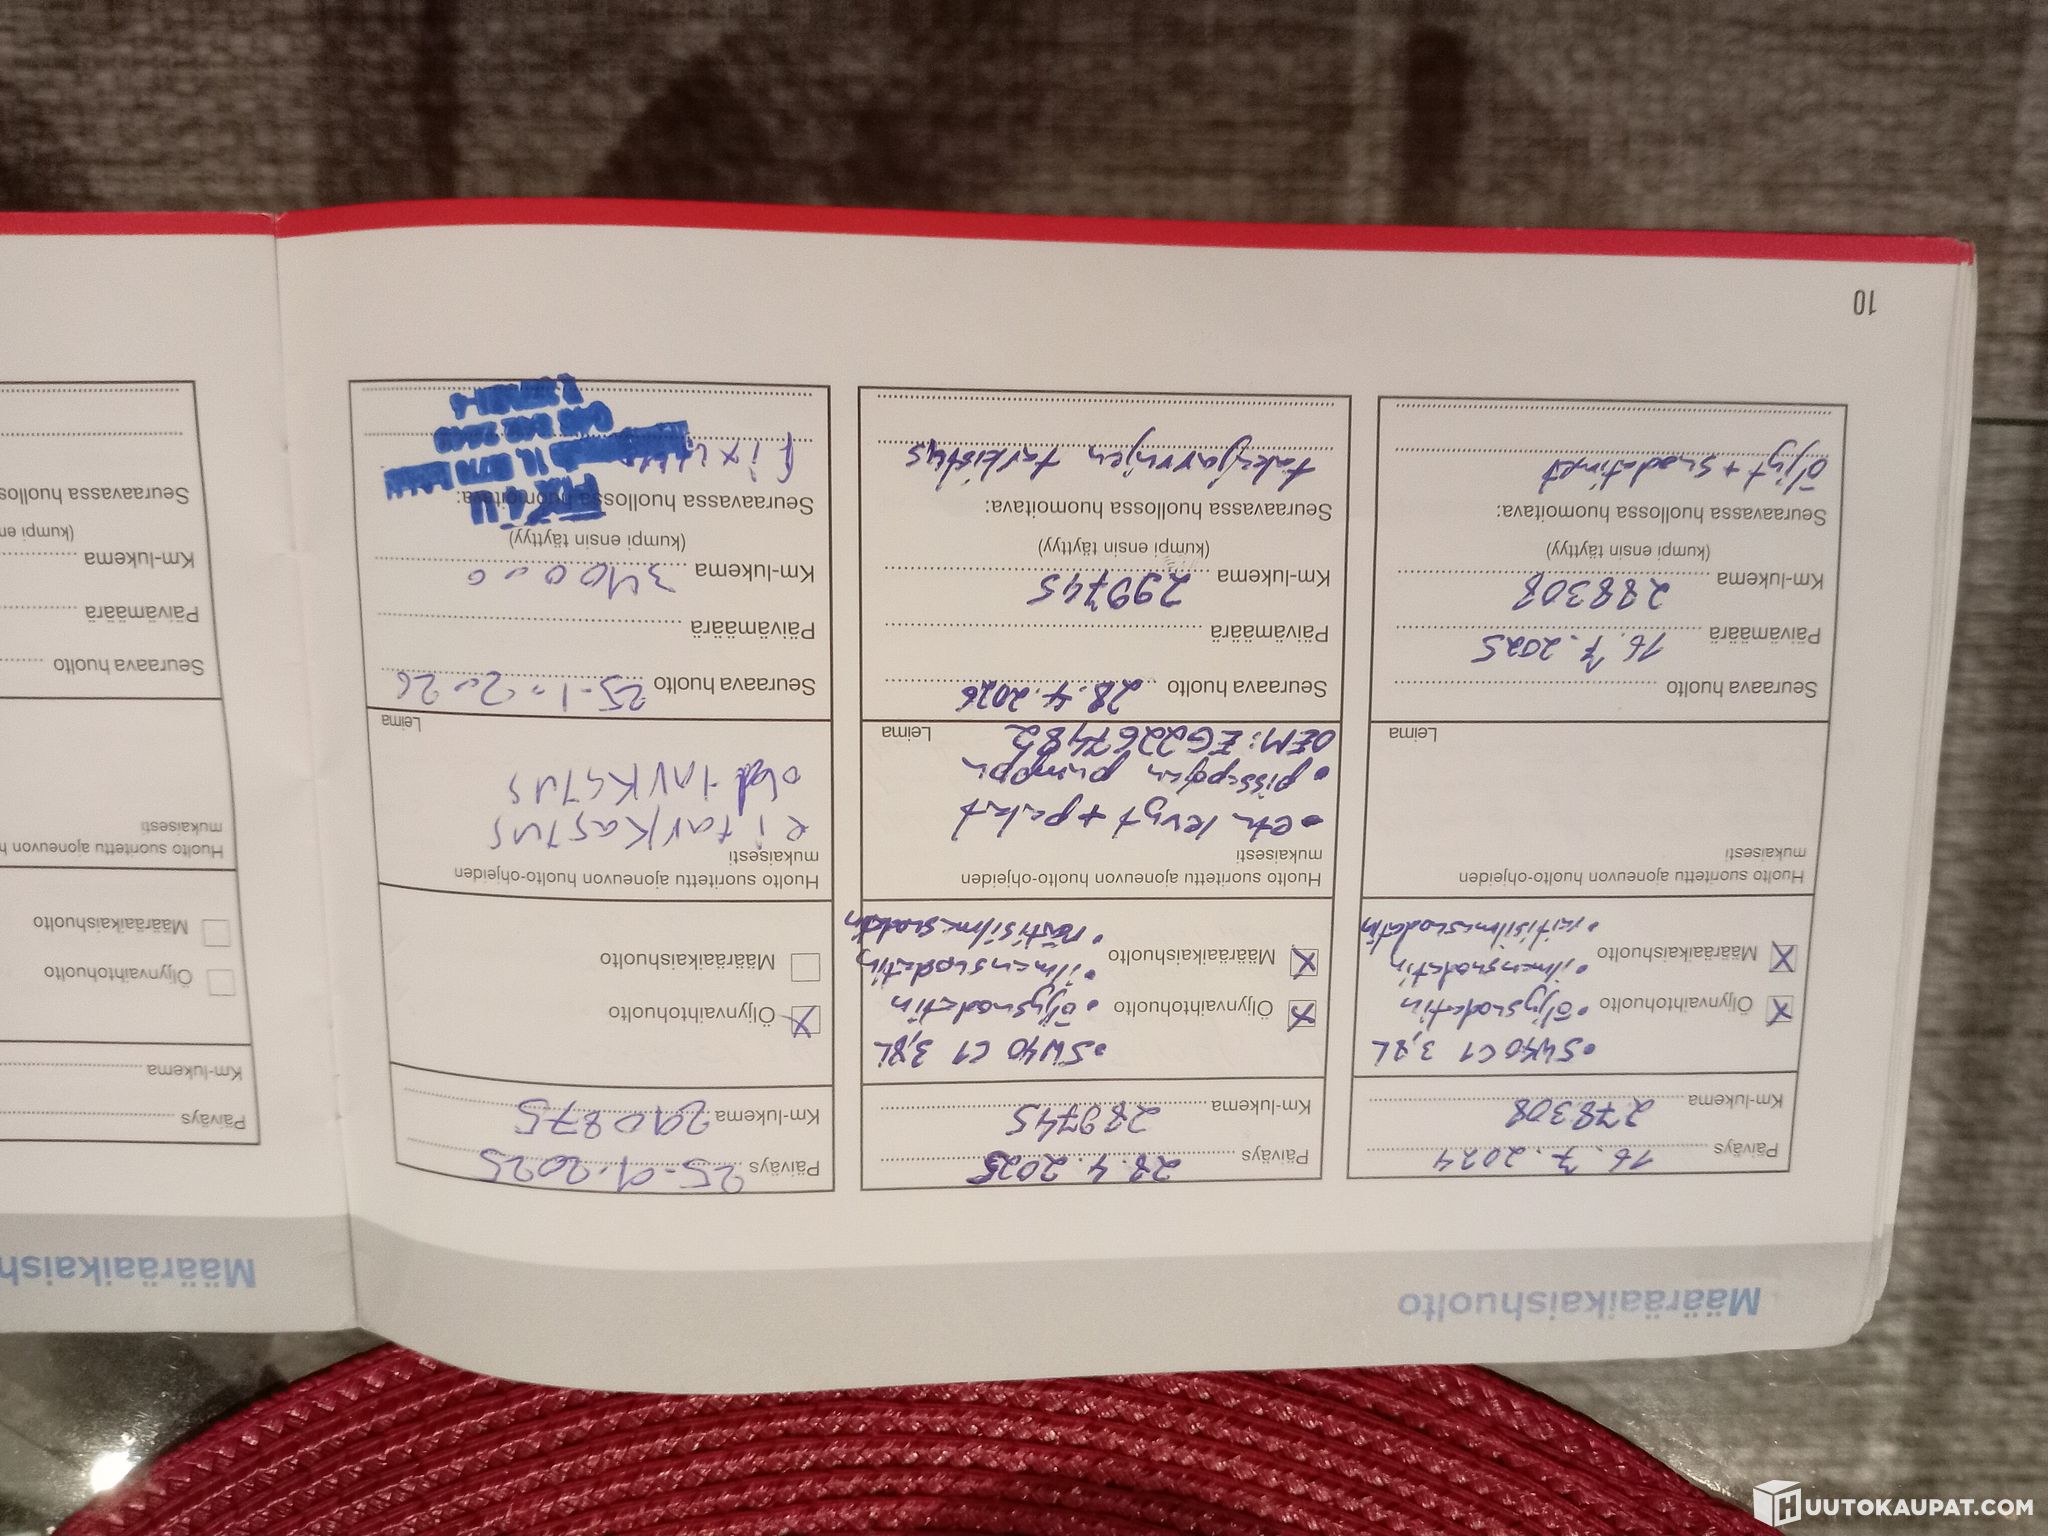 Määräaikaishuolto
Päiväys 16.7.2024
Km-lukema 278308
• 5W40 C1 3,8L
☒ Öljynvaihtohuolto • öljysuodatin
• ilmansuodatin
☒ Määräaikaishuolto
• raitisilmasuodatin
Huolto suoritettu ajoneuvon huolto-ohjeiden
mukaisesti
Leima
Seuraava huolto
Päivämäärä 16.7.2025
Km-lukema 288308
(kumpi ensin täyttyy)
Seuraavassa huollossa huomoitava:
Öljyt + suodattimet
10
Päiväys 28.4.2025
Km-lukema 289745
• 5W40 C1 3,8L
☒ Öljynvaihtohuolto • öljysuodatin
• ilmansuodatin
☒ Määräaikaishuolto
• raitisilmasuodatin
Huolto suoritettu ajoneuvon huolto-ohjeiden
mukaisesti
• etu levyt + palat
• pissapojan pumppu
OEM: EG2267482
Leima
Seuraava huolto 28.4.2026
Päivämäärä
Km-lukema 299745
(kumpi ensin täyttyy)
Seuraavassa huollossa huomoitava:
takajarrujen tarkistus
Päiväys 25.01.2025
Km-lukema 290875
☒ Öljynvaihtohuolto
☐ Määräaikaishuolto
Huolto suoritettu ajoneuvon huolto-ohjeiden
mukaisesti
tarkastus
obd tarkstus
Leima
Seuraava huolto 25-1.2026
Päivämäärä
Km-lukema 340000
(kumpi ensin täyttyy)
Seuraavassa huollossa huomoitava:
FIX 4U
Määräaikaish
Päiväys
Km-lukema
☐ Öljynvaihtohuolto
☐ Määräaikaishuolto
Huolto suoritettu ajoneuvon h
mukaisesti
Seuraava huolto
Päivämäärä
Km-lukema
(kumpi en
Seuraavassa huollos
HUUTOKAUPAT.COM